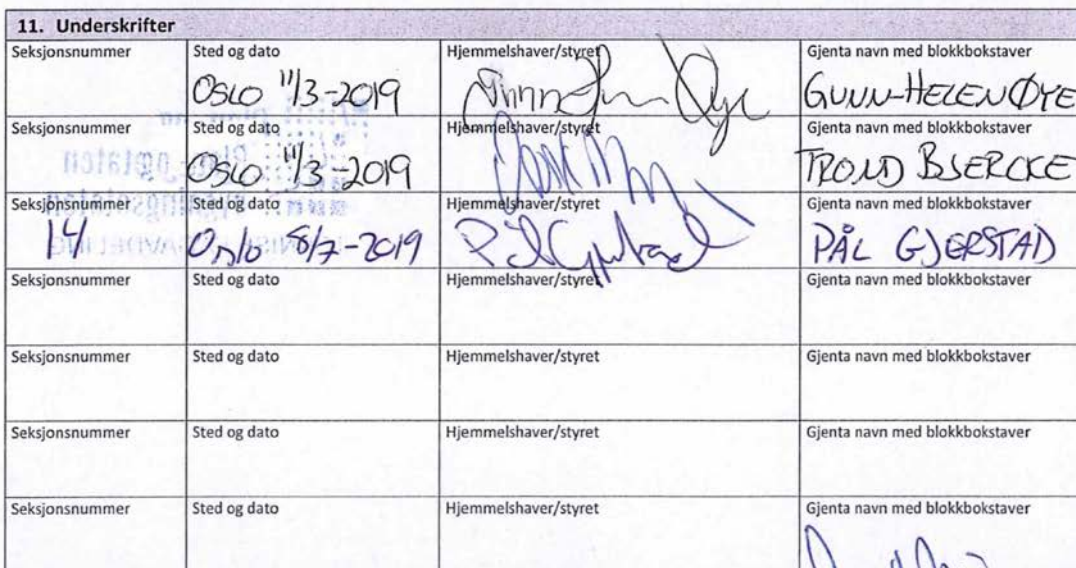 11. Underskrifter
Seksjonsnummer Sted og dato Hjemmelshaver/styret Gjenta navn med blokkbokstaver
OSLO 11/3-2019 GUNN-HELEN ØYE
Seksjonsnummer Sted og dato Hjemmelshaver/styret Gjenta navn med blokkbokstaver
OSLO 11/3-2019 TROND BJERCKE
Seksjonsnummer Sted og dato Hjemmelshaver/styret Gjenta navn med blokkbokstaver
14 Oslo 8/7-2019 Pål Gjerstad PÅL GJERSTAD
Seksjonsnummer Sted og dato Hjemmelshaver/styret Gjenta navn med blokkbokstaver
Seksjonsnummer Sted og dato Hjemmelshaver/styret Gjenta navn med blokkbokstaver
Seksjonsnummer Sted og dato Hjemmelshaver/styret Gjenta navn med blokkbokstaver
Seksjonsnummer Sted og dato Hjemmelshaver/styret Gjenta navn med blokkbokstaver